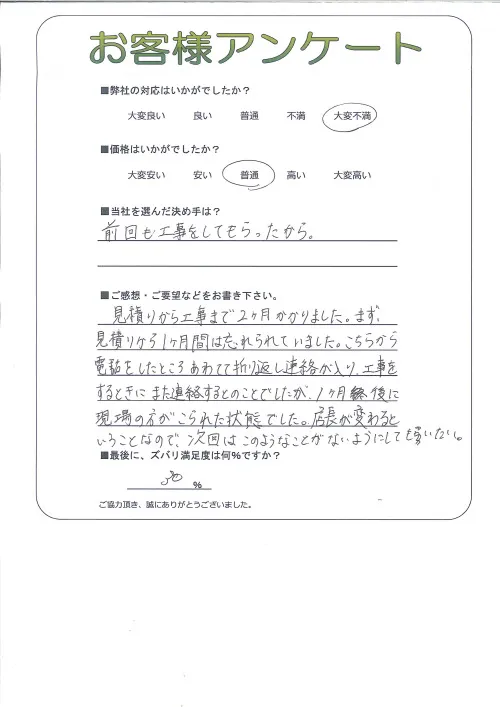 お客様アンケート
■弊社の対応はいかがでしたか？
大変良い 良い 普通 不満 大変不満
■価格はいかがでしたか？
大変安い 安い 普通 高い 大変高い
■当社を選んだ決め手は？
前回も工事をしてもらったから。
■ご感想・ご要望などをお書き下さい。
見積りから工事まで2ヶ月かかりました。まず、
見積りから1ヶ月間は忘れられていました。こちらから
電話をしたところあわてて折り返し連絡が入り、工事を
するときにまた連絡するとのことでしたが、1ヶ月後に
現場の方がこられた状態でした。店長が変わると
いうことなので、次回はこのようなことがないようにして
■最後に、ズバリ満足度は何%ですか？
30 %
ご協力頂き、誠にありがとうございました。